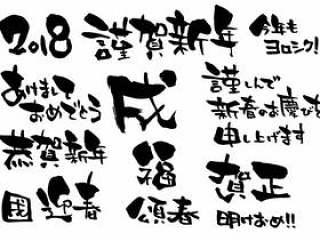 2018 謹賀新年 今年も
ヨロシク!
あけまして
おめでとう
戌
謹しんで
新春のお慶びを
申し上げます
恭賀新年
福
賀正
迎春
頌春
明けおめ!!